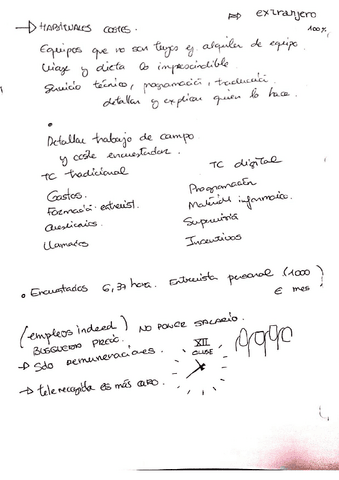 ⇒ extranjero
→ HABITUALES COSTES. 100%
Equipos que no son tuyos ej. alquiler de equipo.
Viaje y dieta lo imprescindible
Servicio técnico, programación, traducción
detallar y explicar quien lo hace.
• Detallar trabajo de campo
y coste encuestador.
TC tradicional TC digital
Gastos. Programación
Formación entrevist. Material informático.
Cuestionarios Supervisión
Llamadas Incentivos
• Encuestador 6,37 hora. Entrevista personal (1000
€ mes)
(empleos indeed) NO PONER SALARIO.
BUSQUEDA PRECIO.
→ Sólo remuneraciones. XII
CLASE
→ telerecogida es más caro.